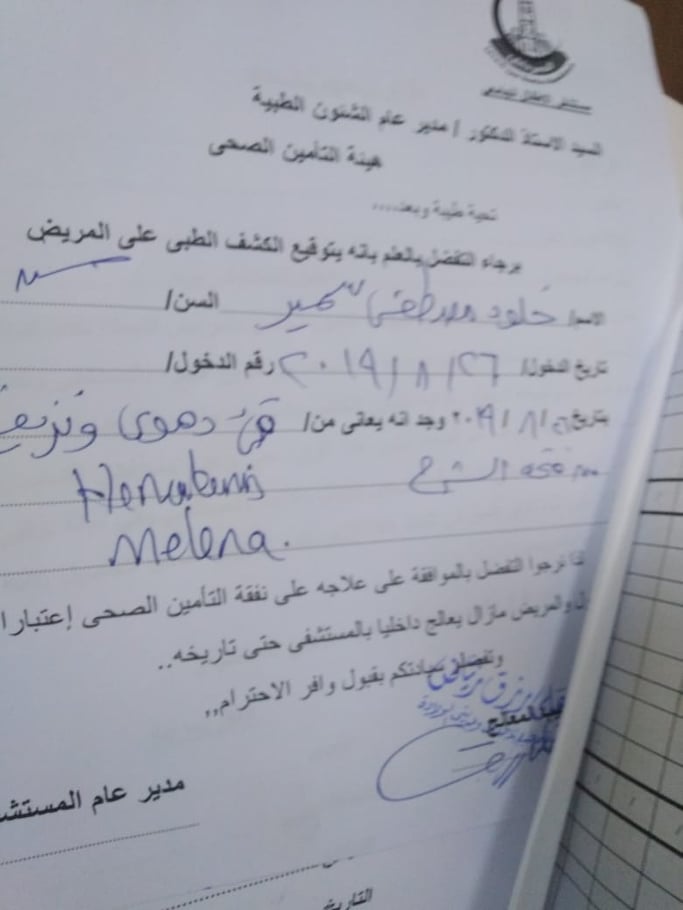 السيد الاستاذ الدكتور / مدير عام الشئون الطبية
هيئة التأمين الصحى
تحية طيبة وبعد....
برجاء التفضل بالعلم بانه بتوقيع الكشف الطبى على المريض
الاسم/ خلود مصطفى سمير السن/
تاريخ الدخول/ ٢٠١٩/٨/٢٦ رقم الدخول/
بتاريخ ٢٠١٩/٨/ وجد انه يعانى من/ قئ دموى ونزيف
من فتحة الشرج
Melena.
لذا نرجوا التفضل بالموافقة على علاجه على نفقة التأمين الصحى إعتبارا
والمريض مازال يعالج داخليا بالمستشفى حتى تاريخه..
وتفضلوا سيادتكم بقبول وافر الاحترام,,
المعالج
مدير عام
التاريخ